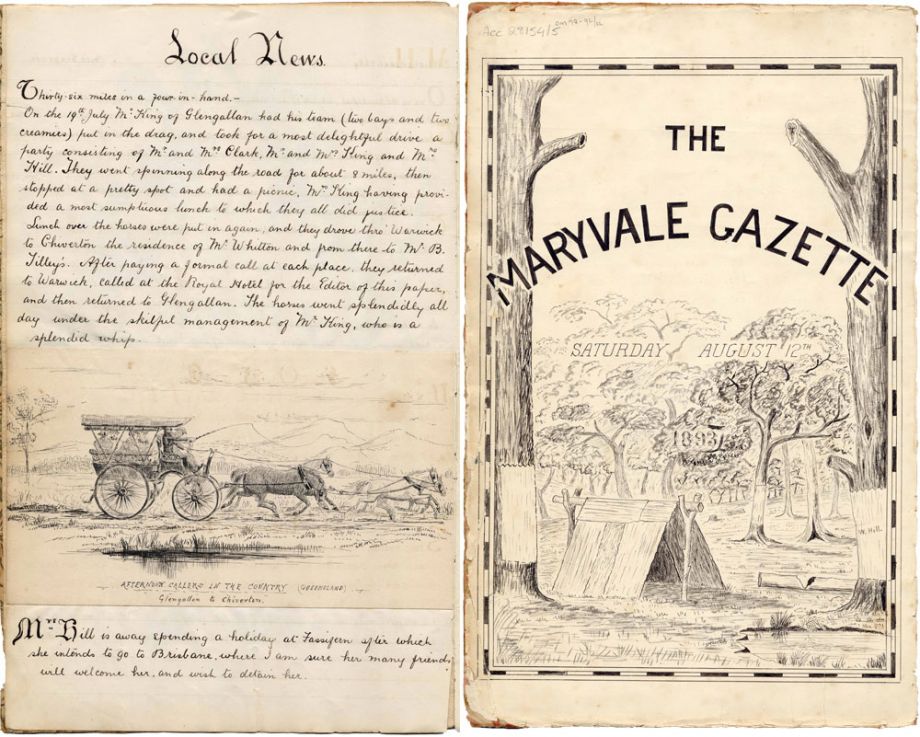 Local News.
Thirty-six miles in a four-in-hand.-
On the 19th July Mr King of Glengallan had his team (two bays and two
creamies) put in the drag, and took for a most delightful drive a
party consisting of Mr and Mrs Clark, Mr and Mrs King and Mrs
Hill. They went spinning along the road for about 8 miles, then
stopped at a pretty spot and had a picnic, Mrs King having provi-
ded a most sumptious lunch to which they all did justice.
Lunch over the horses were put in again, and they drove thro' Warwick
to Chiverton the residence of Mr Whitton and from there to Mr B.
Tilley's. After paying a formal call at each place, they returned
to Warwick, called at the Royal Hotel for the Editor of this paper,
and then returned to Glengallan. The horses went splendidly all
day under the skilful management of Mr King, who is a
splendid whip.
AFTERNOON CALLERS IN THE COUNTRY (QUEENSLAND)
Glengallan to Chiverton.
Mrs Hill is away spending a holiday at Fassifern after which
she intends to go to Brisbane, where I am sure her many friends
will welcome her, and wish to detain her.
Acc 28154/5
THE
MARYVALE GAZETTE
SATURDAY AUGUST 12TH
1893
W. Hill